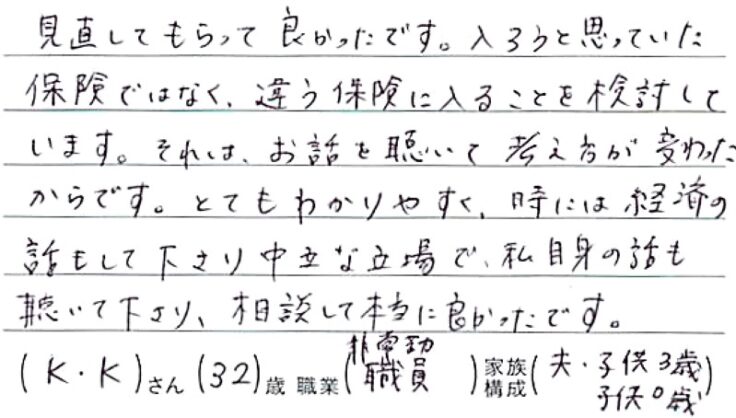 見直してもらって良かったです。入ろうと思っていた
保険ではなく、違う保険に入ることを検討して
います。それは、お話を聴いて考え方が変わった
からです。とてもわかりやすく、時には経済の
話もして下さり中立な立場で、私自身の話も
聴いて下さり、相談して本当に良かったです。
(K・K)さん(32)歳 職業(非常勤職員)家族構成(夫・子供3歳 子供0歳)